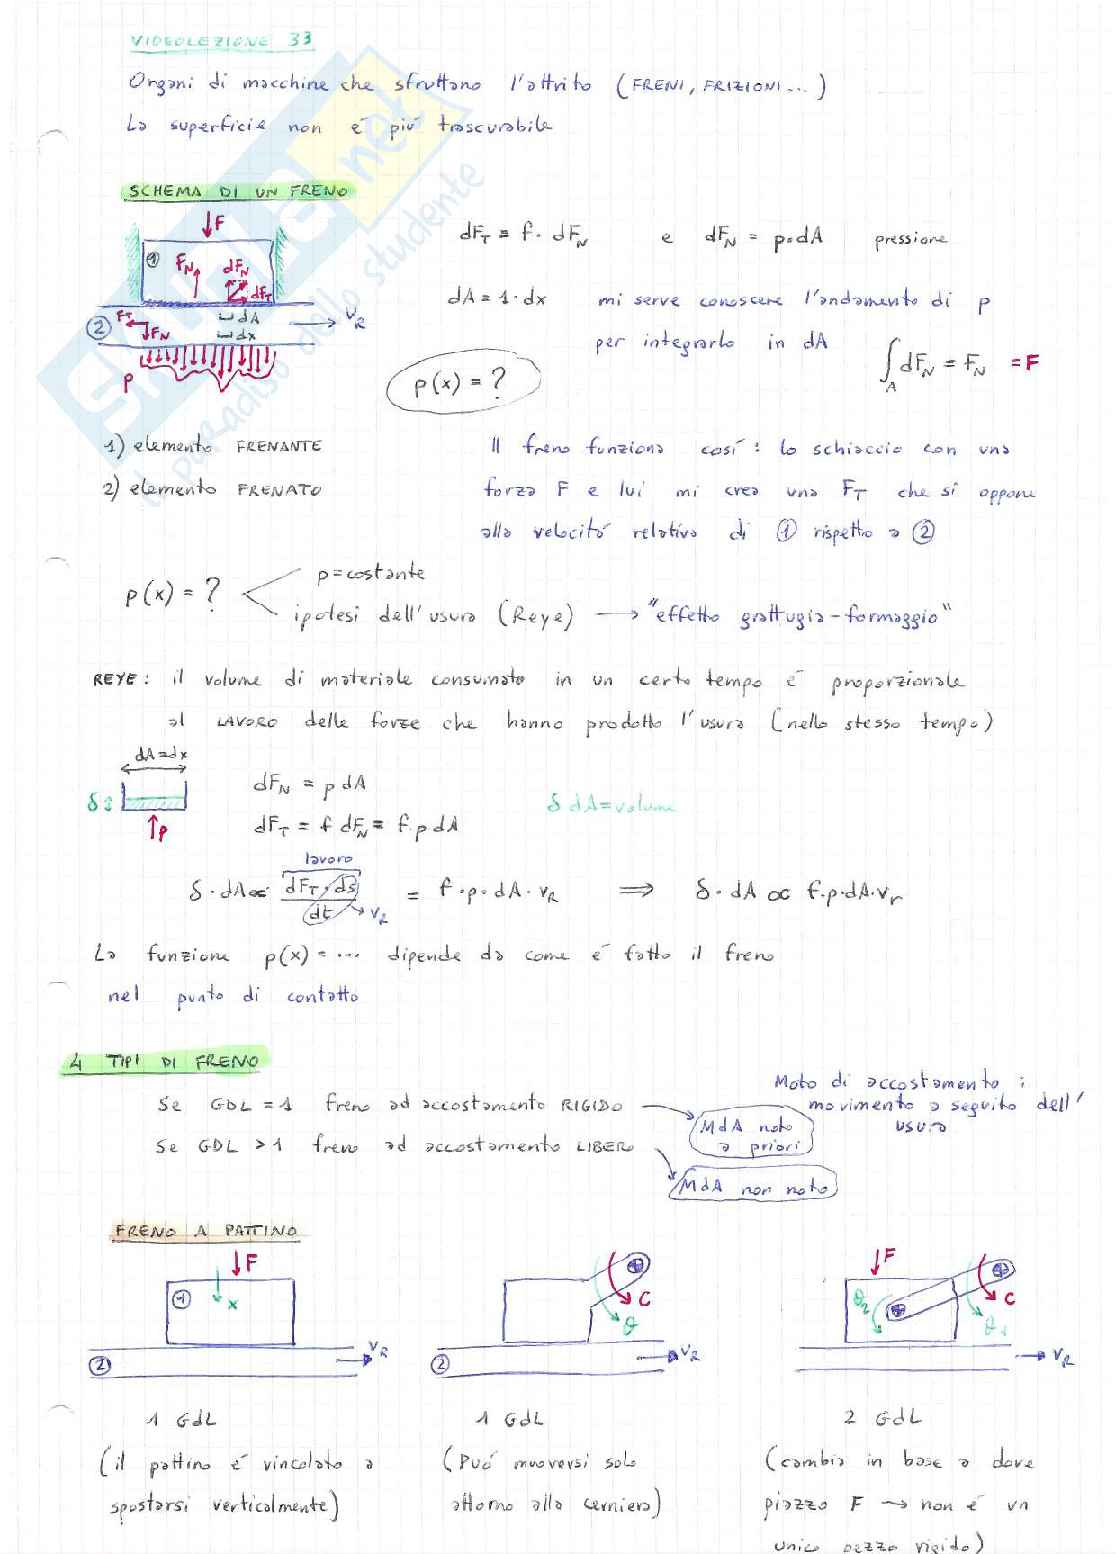 VIDEOLEZIONE 33
Organi di macchine che sfruttano l'attrito (FRENI, FRIZIONI...)
La superficie non é piú trascurabile
SCHEMA DI UN FRENO
F
1
F_N
dF_N
dF_T
dF_T = f · dF_N e dF_N = p·dA pressione
dA = 1·dx mi serve conoscere l'andamento di p
per integrarlo in dA
F_T
2
F_N
dA
dx
V_R
p
p(x) = ?
∫_A dF_N = F_N = F
1) elemento FRENANTE
2) elemento FRENATO
Il freno funziona cosí: lo schiaccio con una
forza F e lui mi crea una F_T che si oppone
alla velocitá relativa di 1 rispetto a 2
p(x) = ?
p = costante
ipotesi dell'usura (Reye) → "effetto grattugia-formaggio"
REYE: il volume di materiale consumato in un certo tempo é proporzionale
al LAVORO delle forze che hanno prodotto l'usura (nello stesso tempo)
dA = dx
δ
p
dF_N = p dA
dF_T = f dF_N = f·p dA
δ dA = volume
lavoro
δ · dA ∝ dF_T · ds / dt → v_R = f·p·dA·v_R ⇒ δ · dA ∝ f·p·dA·v_r
La funzione p(x) = ... dipende da come é fatto il freno
nel punto di contatto
4 TIPI DI FRENO
Se GDL = 1 freno ad accostamento RIGIDO
MdA noto a priori
Se GDL > 1 freno ad accostamento LIBERO
MdA non noto
Moto di accostamento:
movimento a seguito dell'
usura
FRENO A PATTINO
F
1
x
2
V_R
C
θ
2
V_R
F
θ_2
C
θ_1
V_R
1 GdL
(il pattino é vincolato a
spostarsi verticalmente)
1 GdL
(Puó muoversi solo
attorno alla cerniera)
2 GdL
(cambia in base a dove
piazzo F → non é un
unico pezzo rigido)
il paradiso dello studente